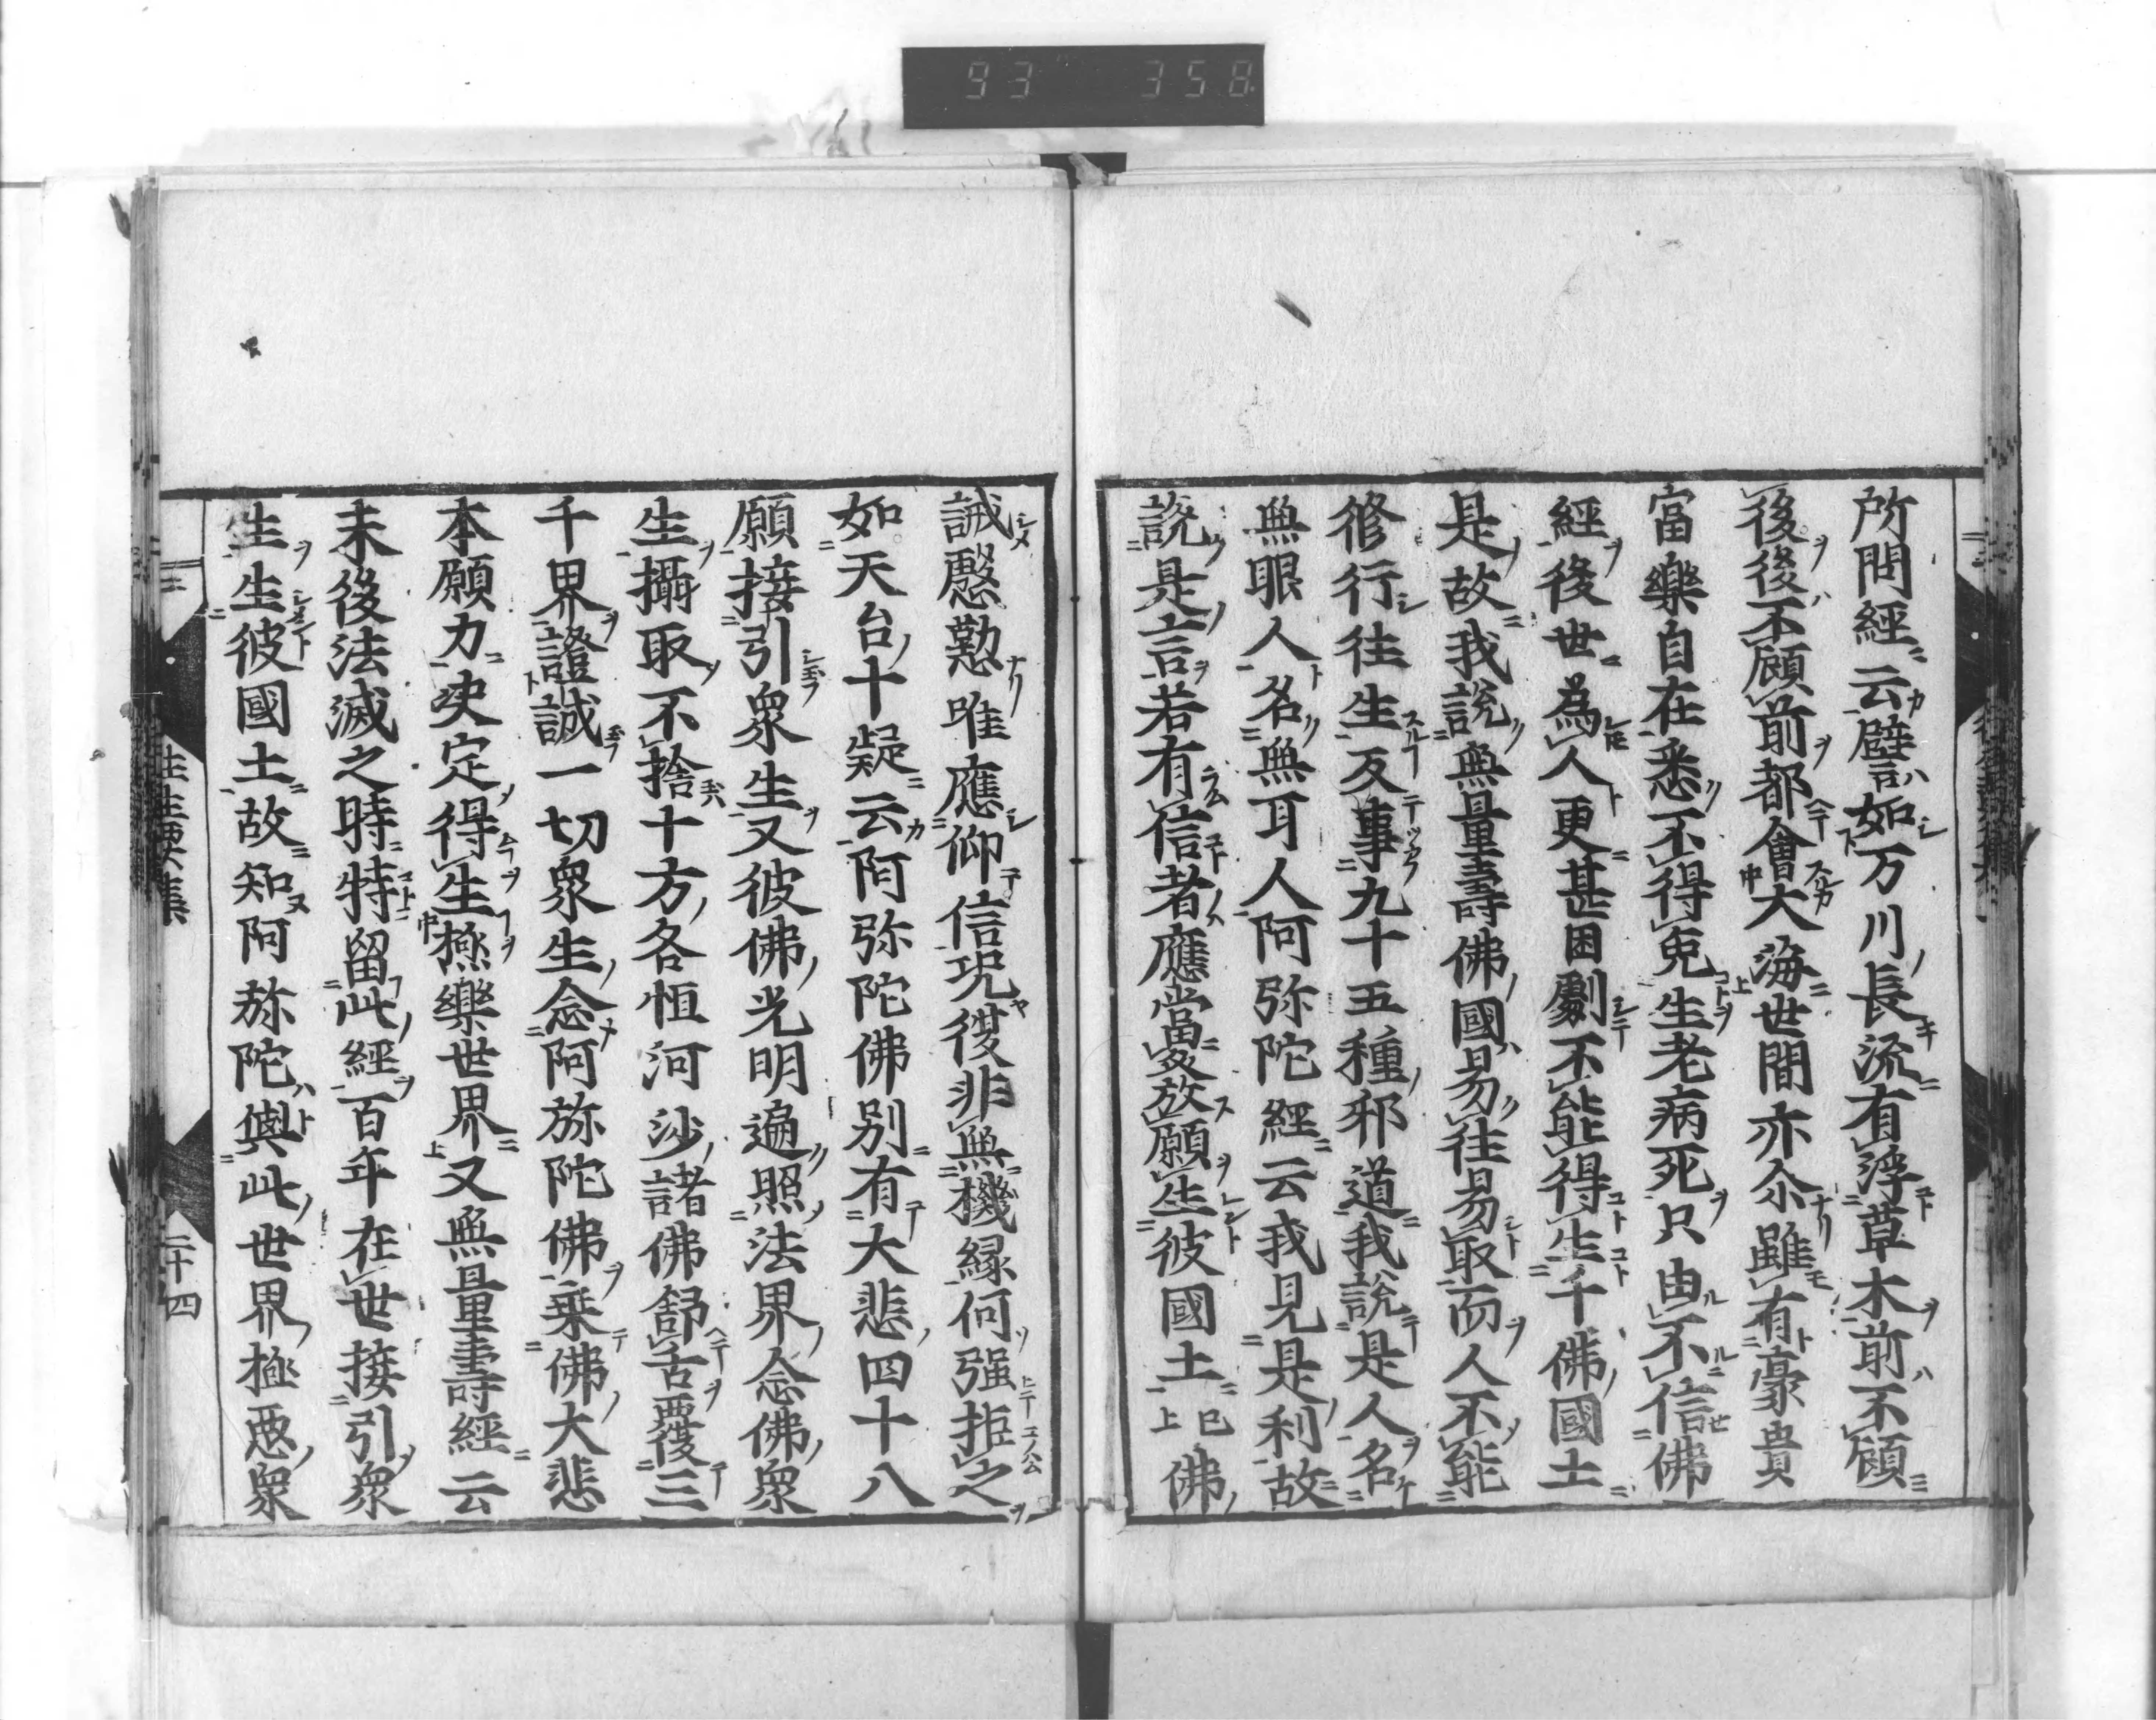 93 358
所問經云譬如万川長流有浮草木前不顧
後後不顧前都會大海世間亦尒雖有豪貴
富樂自在悉不得免生老病死只由不信佛
經後世為人更甚困劇不能得生千佛國土
是故我説無量壽佛國易往易取而人不能
修行往生反事九十五種邪道我説是人名
無眼人名無耳人阿弥陀經云我見是利故
説是言若有信者應當發願生彼國土已上佛
誡慇懃唯應仰信況復非無機縁何强拒之
如天台十疑云阿弥陀佛别有大悲四十八
願接引衆生又彼佛光明遍照法界念佛衆
生攝取不捨十方各恒河沙諸佛舒舌覆三
千界證誠一切衆生念阿弥陀佛乗佛大悲
本願力决定得生極樂世界又無量壽經云
末後法滅之時特留此經百年在世接引衆
生生彼國土故知阿弥陀與此世界極悪衆
往生要集
二十四